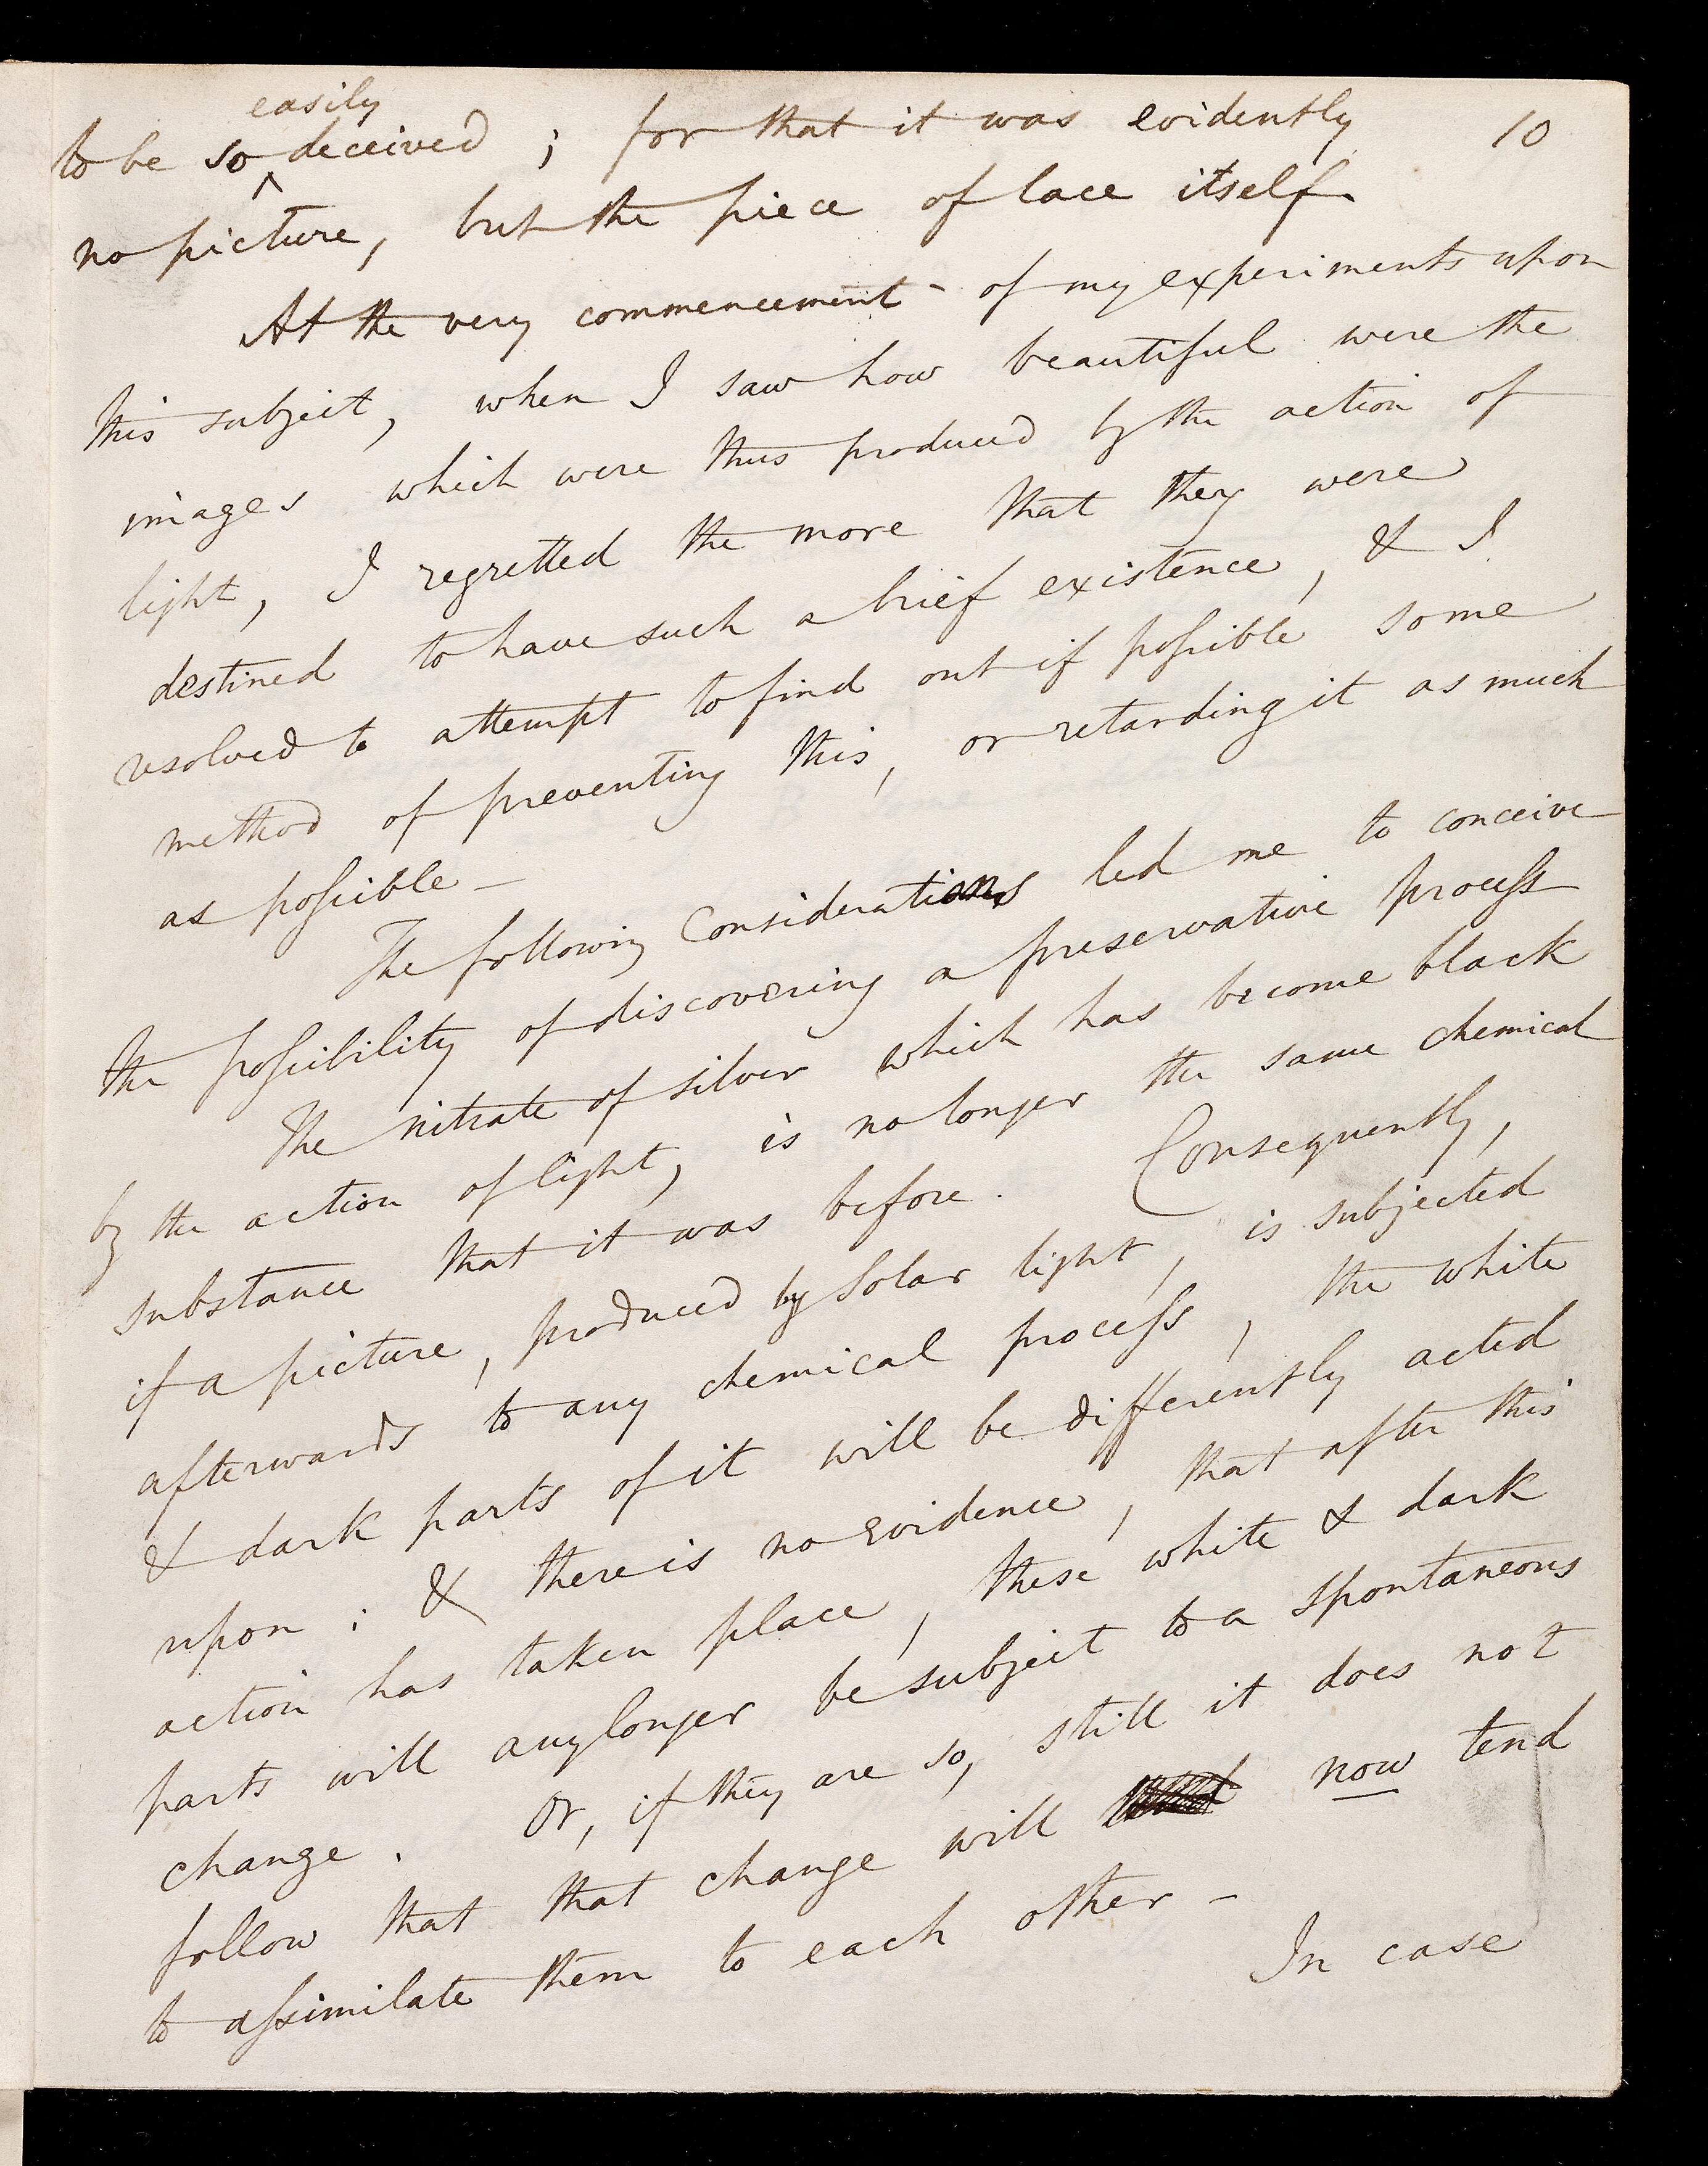 10
easily
to be so deceived ; for that it was evidently
no picture, but the piece of lace itself.
At the very commencement of my experiments upon
this subject, when I saw how beautiful were the
images which were thus produced by the action of
light, I regretted the more that they were
destined to have such a brief existence, & I
resolved to attempt to find out if poſsible some
method of preventing this, or retarding it as much
as poſsible –
The following Considerations led me to conceive
the poſsibility of discovering a preservative proceſs
The nitrate of silver which has become black
by the action of light, is no longer the same chemical
substance that it was before. Consequently,
if a picture, produced by Solar light, is subjected
afterwards to any chemical proceſs, the white
& dark parts of it will be differently acted
upon ; & there is no evidence, that after this
action has taken place, these white & dark
parts will any longer be subject to a spontaneous
change. Or, if they are so, still it does not
follow that that change will now tend
to aſsimilate them to each other –
In case